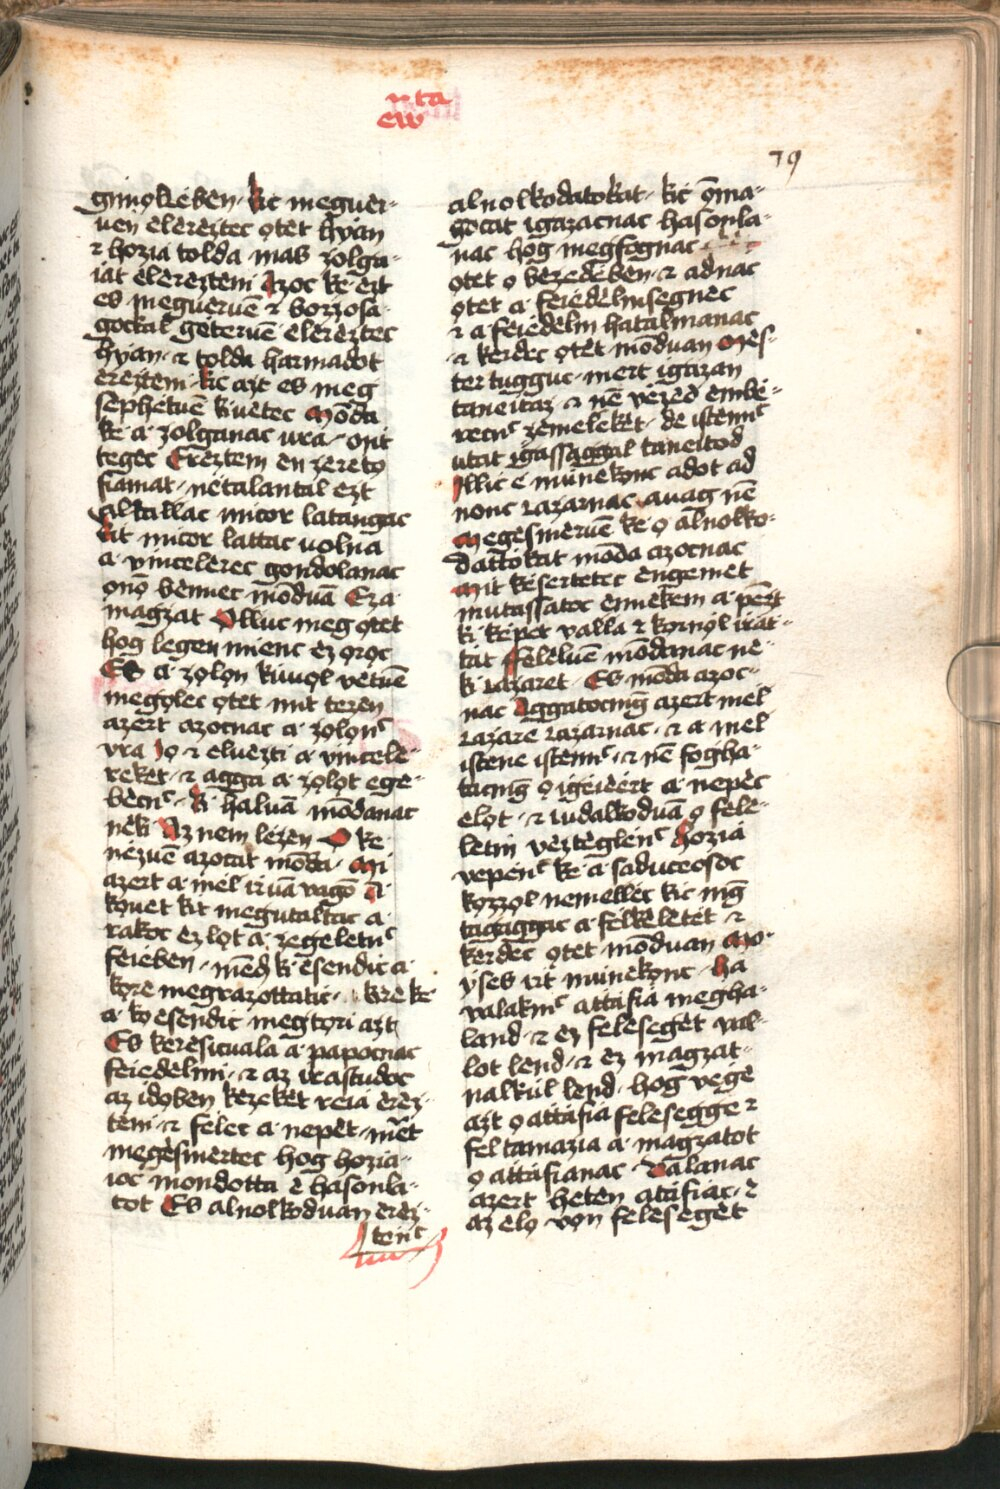 79
gimolċėbèn · kic meguèr-
uen èlerèztec otèt hÿan
ɛ hozia tolda maſ zolga-
iat èlerèztèni Azoc kė · ezt
eſ megueruē ɛ borzosa-
gockal geteruē èlerèztec
hÿan · ɛ tolda harmadot
erèztėni · kic azt es meg
sephetuē kiuètec Mōda
kė · a · zolganac vra · mit
tegec Erèztem en zerèto
fiamat · nètalantal ezt
Mikor latangac
kit micor lattac uolna
a · vincelèrec gondolanac
ōnō bennèc mōduā Eza ·
magzat Olluc meg otèt
hog legen mienc ez oroc
Es a · zolon kiuol vètuē
mėgolec otèt · mit tezen
azèrt azocnac a · zolonᶜ
vra Jo ɛ eluèzti a · vincelè-
rèkèt · ɛ agga a · zolot ege-
bècnᶜ · ki haluā mōdanac
nèki Az nem lezen O kė ·
nèzuē azocat mōda · Mi
azèrt a · mel iruā vagō A ·
kouèt kit megutaltac a ·
rakoc ez lot a · zegeletnᶜ
feieben · mēd ki esendic a ·
kore megrazottatic · kire kė
a · ko esendic megtori azt
Es keresicuala a · papocnac
feiedelmi · ɛ az irastudoc
az idoben kezekèt reia èrèz-
tèni · ɛ felec a · nepèt · mèrt
megėsmertec hog hozia-
ioc mondotta è hasonla-
tot Es alnolkoduan èrèz-
tenᶜ
alnolkodatokat · kic ōma-
gocat igazacnac hasonla-
nac hog megfognac
otèt o bezedèben · ɛ adnac
otèt a · feiedèlmsegnèc
ɛ a · feiedèlm hatalmanac
· ɛ kerdec otèt mōduan Mès-
ter tugguc · mèrt igazan
taneitaz · ɛ nē vèzed èmbè-
recnᶜ zèmelekèt · de istènnᶜ
utat igassaggal taneitod
Illic è munèkonc adot ad
nonc cazarnac auag nē
Megėsmeruē kė · o alnolko-
dattokat mōda azocnac
Mit kesertetec engemet
mutassatoc ennekem a · pēzt
ki kepèt valla ɛ kornol irat-
tat Feleluē mōdanac nè-
ki cazaret · Es mōda azoc-
nac Aggatocmg azèrt mel
cazare cazarnac · ɛ a · mel
istene istennᶜ · ɛ nē fogha-
tacmg o igeieèrt a · nepèc
elot · ɛ cudalkoduā o fele-
letin vèztèglenᶜ hozia
vepenᶜ kė · a · saduceosoc
kozzol nemellec kic mg
tagaggac a · felkeletèt ɛ
kerdec otèt · moduan Mo-
yseſ irt munekonc · ha
valakinᶜ attafia megha-
land · ɛ ez felesegèt val-
lot lend · ɛ ez magzat-
nalkul lend · hog vegè
azt o attafia felesegge ɛ
fel tamazia a · magzatot
o attafianac · Valanac
azèrt hetèn atafiac · ɛ
az èlo von felesegèt